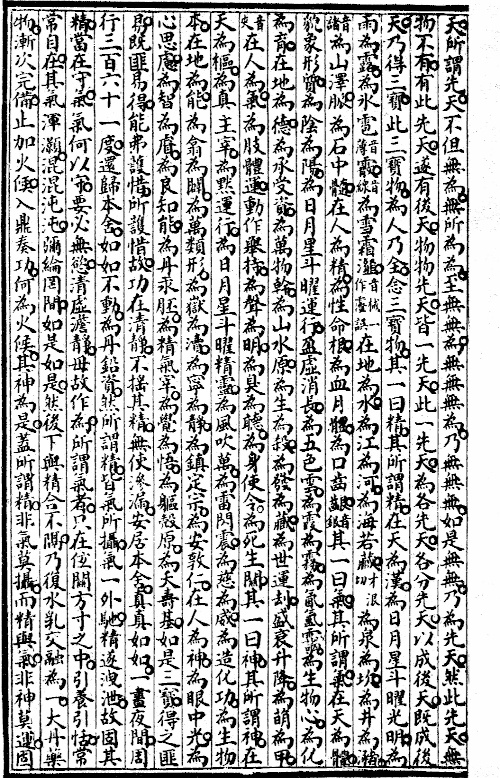 天所謂先天不但無為無所為為主無無為無無為乃無無無如是無無乃為先天然此先天無
物不有有此先天遂有後天物物先天皆一先天此一先天為各先天各分先天以成後天既成後
天乃得三寶此三寶物為人乃全念三寶物其一曰精其所謂精在天為漢為日月星斗曜光明為
雨為露為氷雹音薄霰音線為雪霜瀣音械一作誤在地為水為江為河為海若藏才浪切為泉為坎為井為豬
音諸為山澤脈為石中髓在人為精為性命根為血月體為口齒齦音銀其一曰氣其所謂氣在天為體
為象形質為陰為陽為日月星斗曜運行盈虛消長為五色雲為霞為霧為氤氳靈為生物心為化
為育在地為德為承受資為萬物輪為山水原為生為殺為發為藏為世運刦盛衰升降為萌為甲
音夾在人為氣為肢體運動作舉持為聲為明為臭為聽為身使令為死生關其一曰神其所謂神在
天為樞為真主宰為默運行為日月星斗曜精靈為風吹萬為雷門震為慈為威為造化功為生物
本在地為能為翕為闢為萬類形為嶽為瀆為寧為靜為鎮定宗為安敦仁在人為神為眼中光為
心思慮為智為慮為良知能為丹汞胚為精氣宰為覺為悟為軀殼原為天壽基如是三寶得之匪
易既匪易得能弗護惜所護惜故功在清靜不搖其精無使滲漏安居本舍真真如如一晝夜間周
行三百六十一度還歸本舍如如不動為丹鉛資然所謂精皆氣所攝氣一外馳精逐洩泄故固其
精當在守氣氣何以守要必無慾清虛澹靜毋故作為所謂氣者只在位關方寸之中引養引恬常
常自在其氣渾灝混混沌沌彌綸罔間如是如是然後下與精合不隔乃復水乳交融為一大丹樂
物漸次完備止加火候入鼎奏功何為火候其神為是蓋所謂精非氣莫攝而精與氣非神莫運固